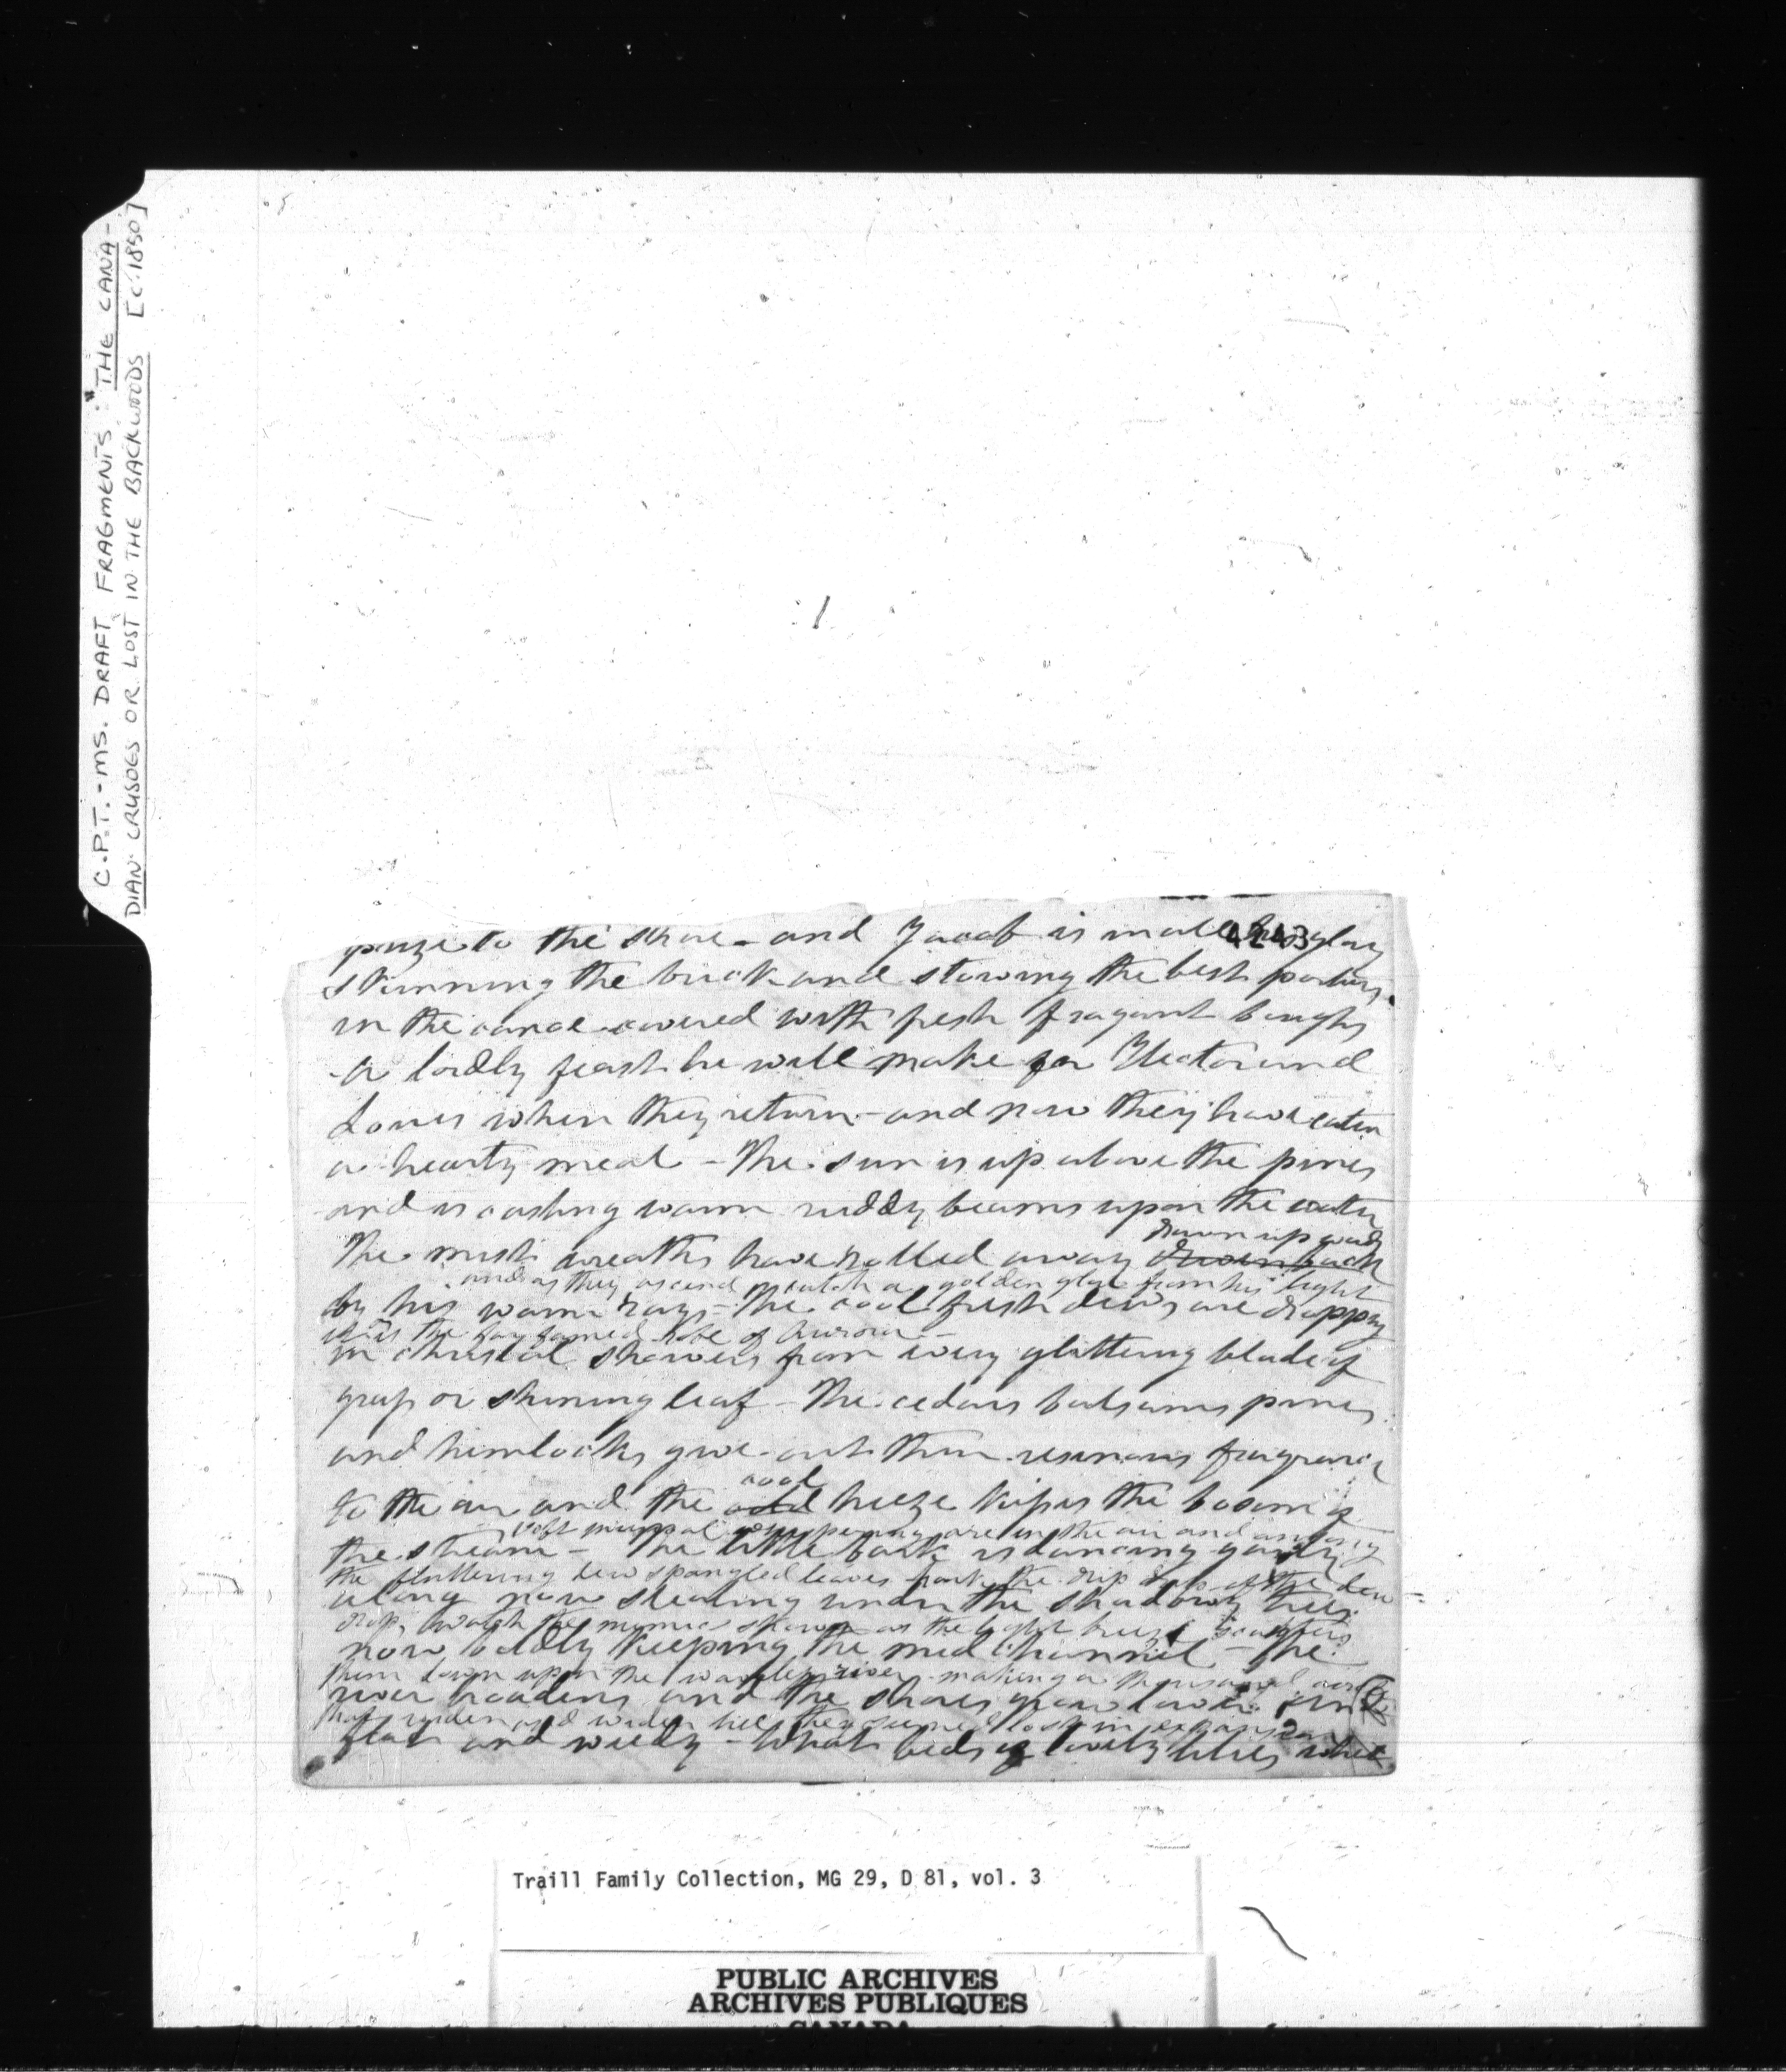 C.P.T. - MS. DRAFT FRAGMENTS "THE CANA-
DIAN CRUSOES OR LOST IN THE BACKWOODS [c. 1850]
4243
prize to the shore - and Jacob is
skinning the buck and stowing the best portions
in the canoe covered with fresh fragant boughs
- a lordly feast he will make for Hector and
Louis when they return - and now they have eaten
a hearty meal - The sun is up above the pines
and is casting warm ruddy beams upon the water
drawn up
The mist wreaths have rolled away driven back
and as they ascend catch a golden glow from his light
by his warm rays - The cool fresh dews are dropping
robe of Aurora -
in christal showers from every glittering blade of
grass or shining leaf - The cedars balsams pines
and hemlocks give out their resinous fragrance
cool
to the air and the cold breeze the bosom of
soft whispering are in the air and among
the stream - The little bark is dancing gaily
the fluttering dew spangled leaves hark the drip drip of the dew
along now stealing under the shadowy trees
drops watch the mimic shower as the light breeze scatters
now boldly keeping the mid channel - the
them down upon the river making a thousand
river broadens and the shores grow lower and
that widen and widen till they seemed lost in
flat and weedy - What beds of lovely lilies white
Traill Family Collection, MG 29, D 81, vol. 3
PUBLIC ARCHIVES
ARCHIVES PUBLIQUES
CANADA